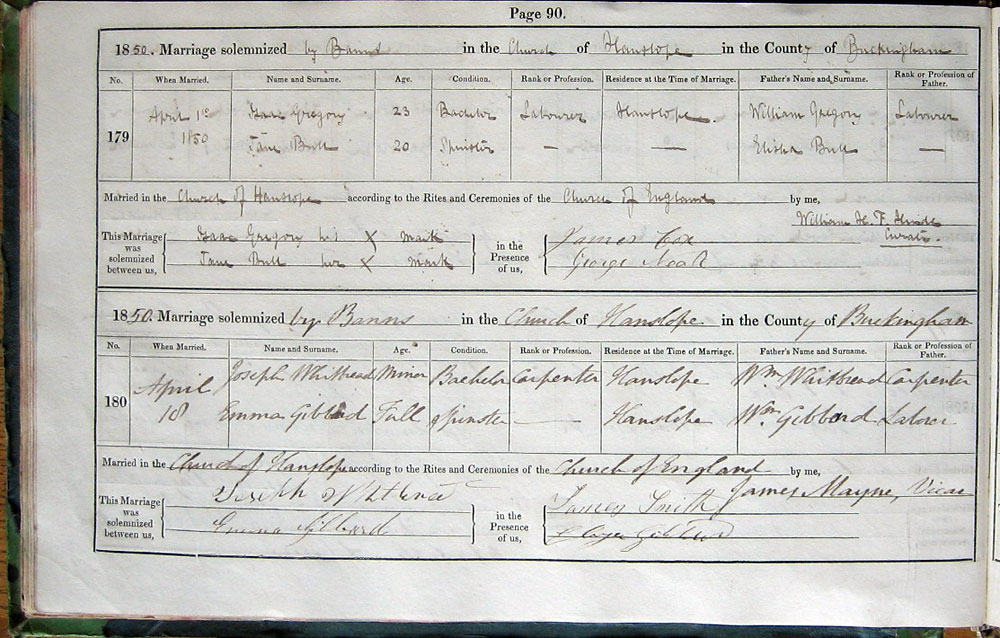 Page 90.
1850. Marriage solemnized by Banns in the Church of Hanslope in the County of Buckingham
No. When Married. Name and Surname. Age. Condition. Rank or Profession. Residence at the Time of Marriage. Father's Name and Surname. Rank or Profession of Father.
179 April 1st 1850 Isaac Gregory 23 Bachelor Labourer Hanslope. William Gregory Labourer
Jane Bull 20 Spinster — — Elisha Bull —
Married in the Church of Hanslope according to the Rites and Ceremonies of the Church of England by me,
William H. F.
Curate.
This Marriage was solemnized between us, Isaac Gregory his X mark in the Presence of us, James Cox
Jane Bull her X mark George Neal
1850. Marriage solemnized by Banns in the Church of Hanslope in the County of Buckingham
No. When Married. Name and Surname. Age. Condition. Rank or Profession. Residence at the Time of Marriage. Father's Name and Surname. Rank or Profession of Father.
180 April 18 Joseph Whitbread Minor Bachelor Carpenter Hanslope Wm Whitbread Carpenter
Emma Gibbard Full Spinster — Hanslope Wm Gibbard Labourer
Married in the Church of Hanslope according to the Rites and Ceremonies of the Church of England by me,
James Mayne, Vicar
This Marriage was solemnized between us, Joseph in the Presence of us, Smith
Emma Gibbard